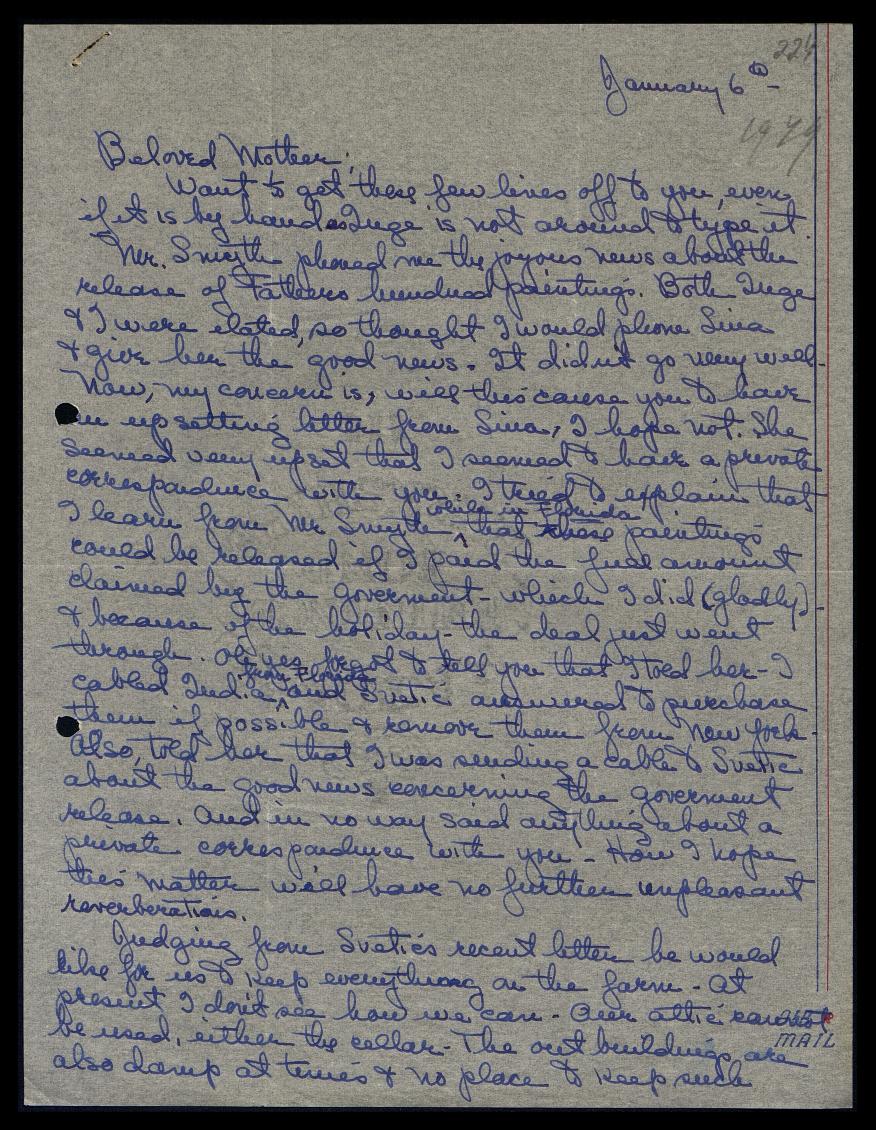 224
January 6th -
1949
Beloved Mother,
Want to get these few lines off to you, even
if it is by hand as Inge is not around to type it.
Mr. Smyth phoned me the joyous news about the
release of Fathers hundred paintings. Both Inge
& I were elated, so thought I would phone Sina
& give her the good news. It didn't go very well -
Now, my concern is, will this cause you to have
an upsetting letter from Sina, I hope not. She
seemed very upset that I seemed to have a private
correspondence with you. I tried to explain that
while in Florida
I learn from Mr Smyth ^ that these paintings
could be released if I paid the full amount
claimed by the goverment - which I did (gladly) -
& because of the holiday - the deal just went
through. Oh yes, forgot to tell you that I told her - I
from Florida
cabled India ^ and Svetic answered to purchase
them if possible & remove them from New York -
Also, told her that I was sending a cable to Svetic
about the good news concerning the goverment
release. And in no way said anything about a
private correspondence with you - How I hope
this matter will have no further unpleasant
reverberations.
Judging from Svetic's recent letter he would
like for us to keep everything on the farm - At
present I don't see how we can - Our attic cannot
be used, either the cellar - The out buildings are
MAIL
also damp at times & no place to keep such